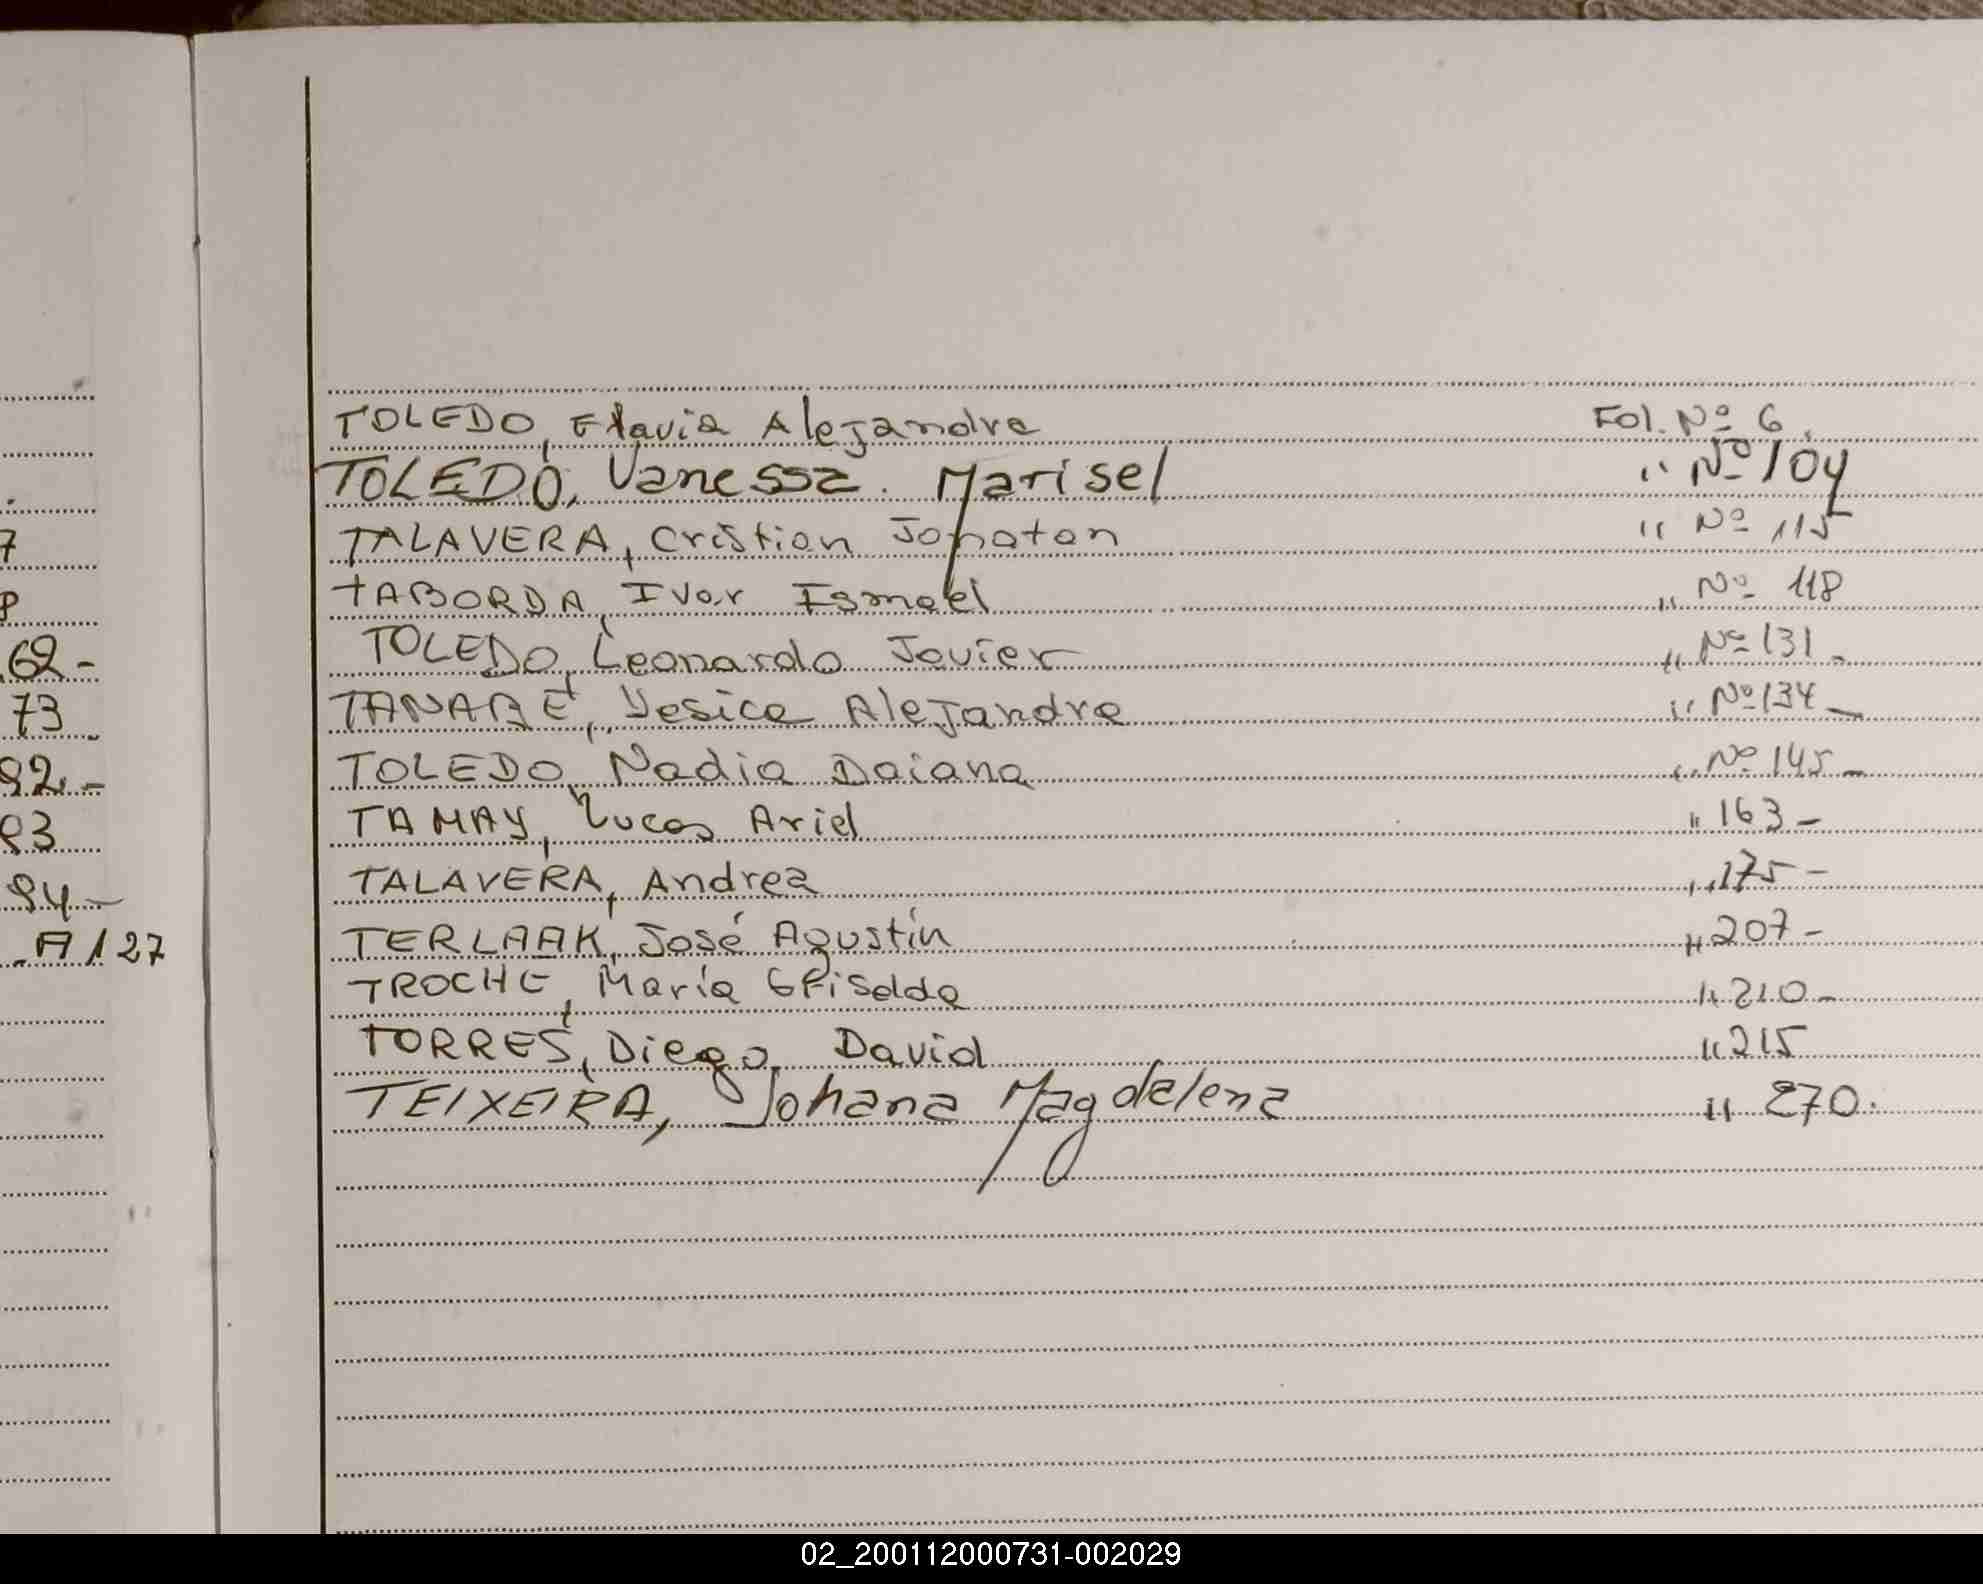 TOLEDO, Flavia Alejandra Fol. Nº 6.
TOLEDO, Vanessa Marisel " Nº 104
TALAVERA, Cristian Jonatan " Nº 115
TABORDA, Ivar Ismael " Nº 118
TOLEDO, Leonardo Javier " Nº 131 -
TANABE, Yesica Alejandra " Nº 134 -
TOLEDO, Nadia Daiana " Nº 145 -
TAMAY, Lucas Ariel " 163 -
TALAVERA, Andrea " 175 -
TERLAAK, José Agustín " 207 -
TROCHE, María Griselda " 210 -
TORRES, Diego David " 215
TEIXEIRA, Johana Magdalena " 270.
62 -
73
92 -
93
94 -
A 127
02_200112000731-002029